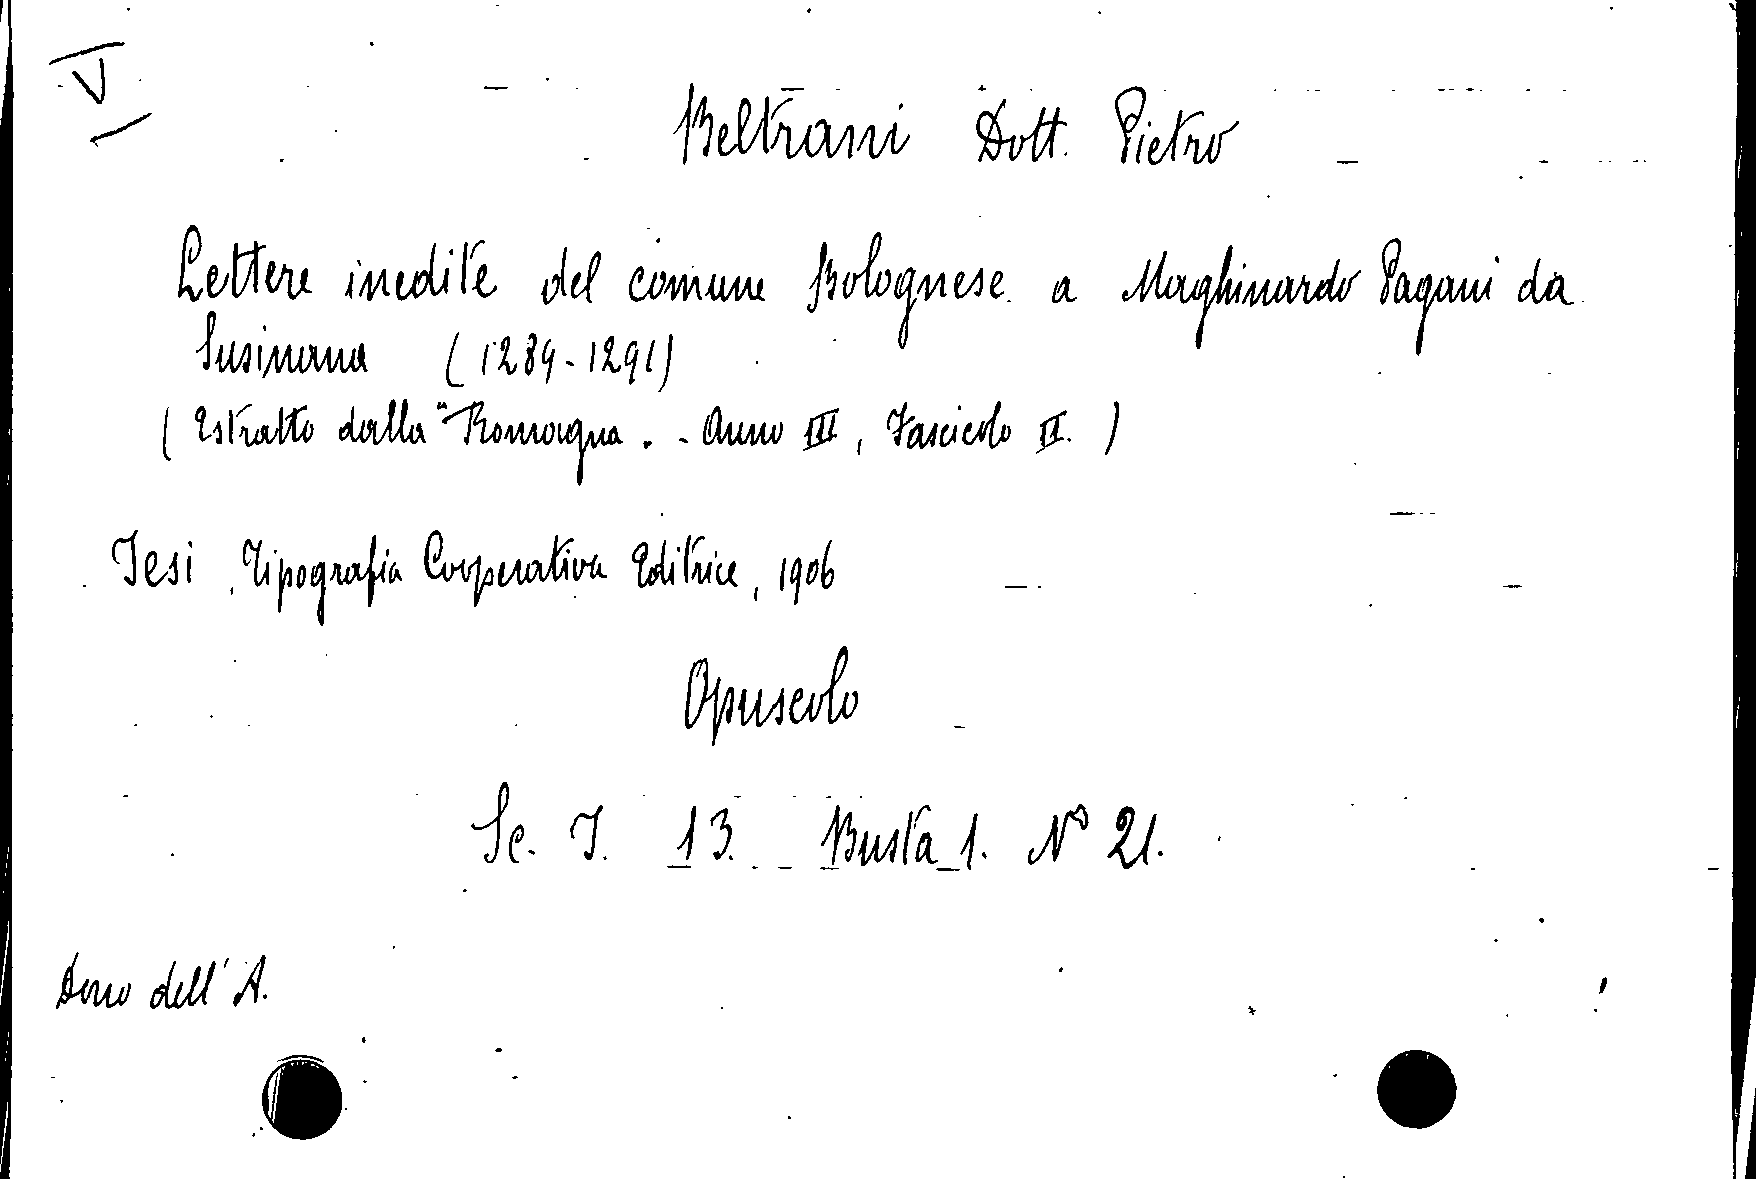 V
Beltrani Dott. Pietro
Lettere inedite del comune Bolognese a Maghinardo Pagani da
Susinana (1289-1291)
(Estratto dalla "Romagna. - Anno III, Fascicolo II.)
Jesi, Tipografia Cooperativa Editrice, 1906
Opuscolo
Sc. I. 13. Busta 1. N° 21.
Dono dell'A.